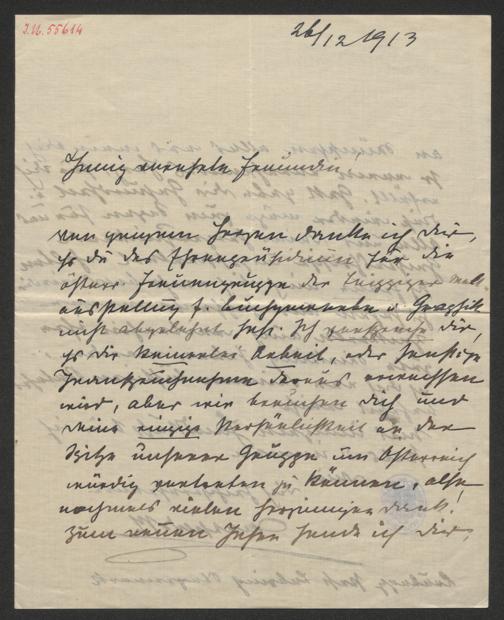 I.N. 55614
26/12 1913
Innig verehrte Freundin!
von ganzem Herzen danke ich dir,
daß du das Ehrenpräsidium für die
österr Frauengruppe der Leipziger Welt
ausstellung f. Buchgewerbe u Graphik
nicht abgelehnt hast. Ich verspreche dir,
daß dir keinerlei Arbeit, oder sonstige
Inanspruchnahme daraus erwachsen
wird, aber wir brauchen dich und
deine einzige Persönlichkeit an der
Spitze unserer Gruppe um Österreich
würdig vertreten zu können, also
nochmals vielen herzinnigen Dank!
Zum neuen Jahre sende ich dir,